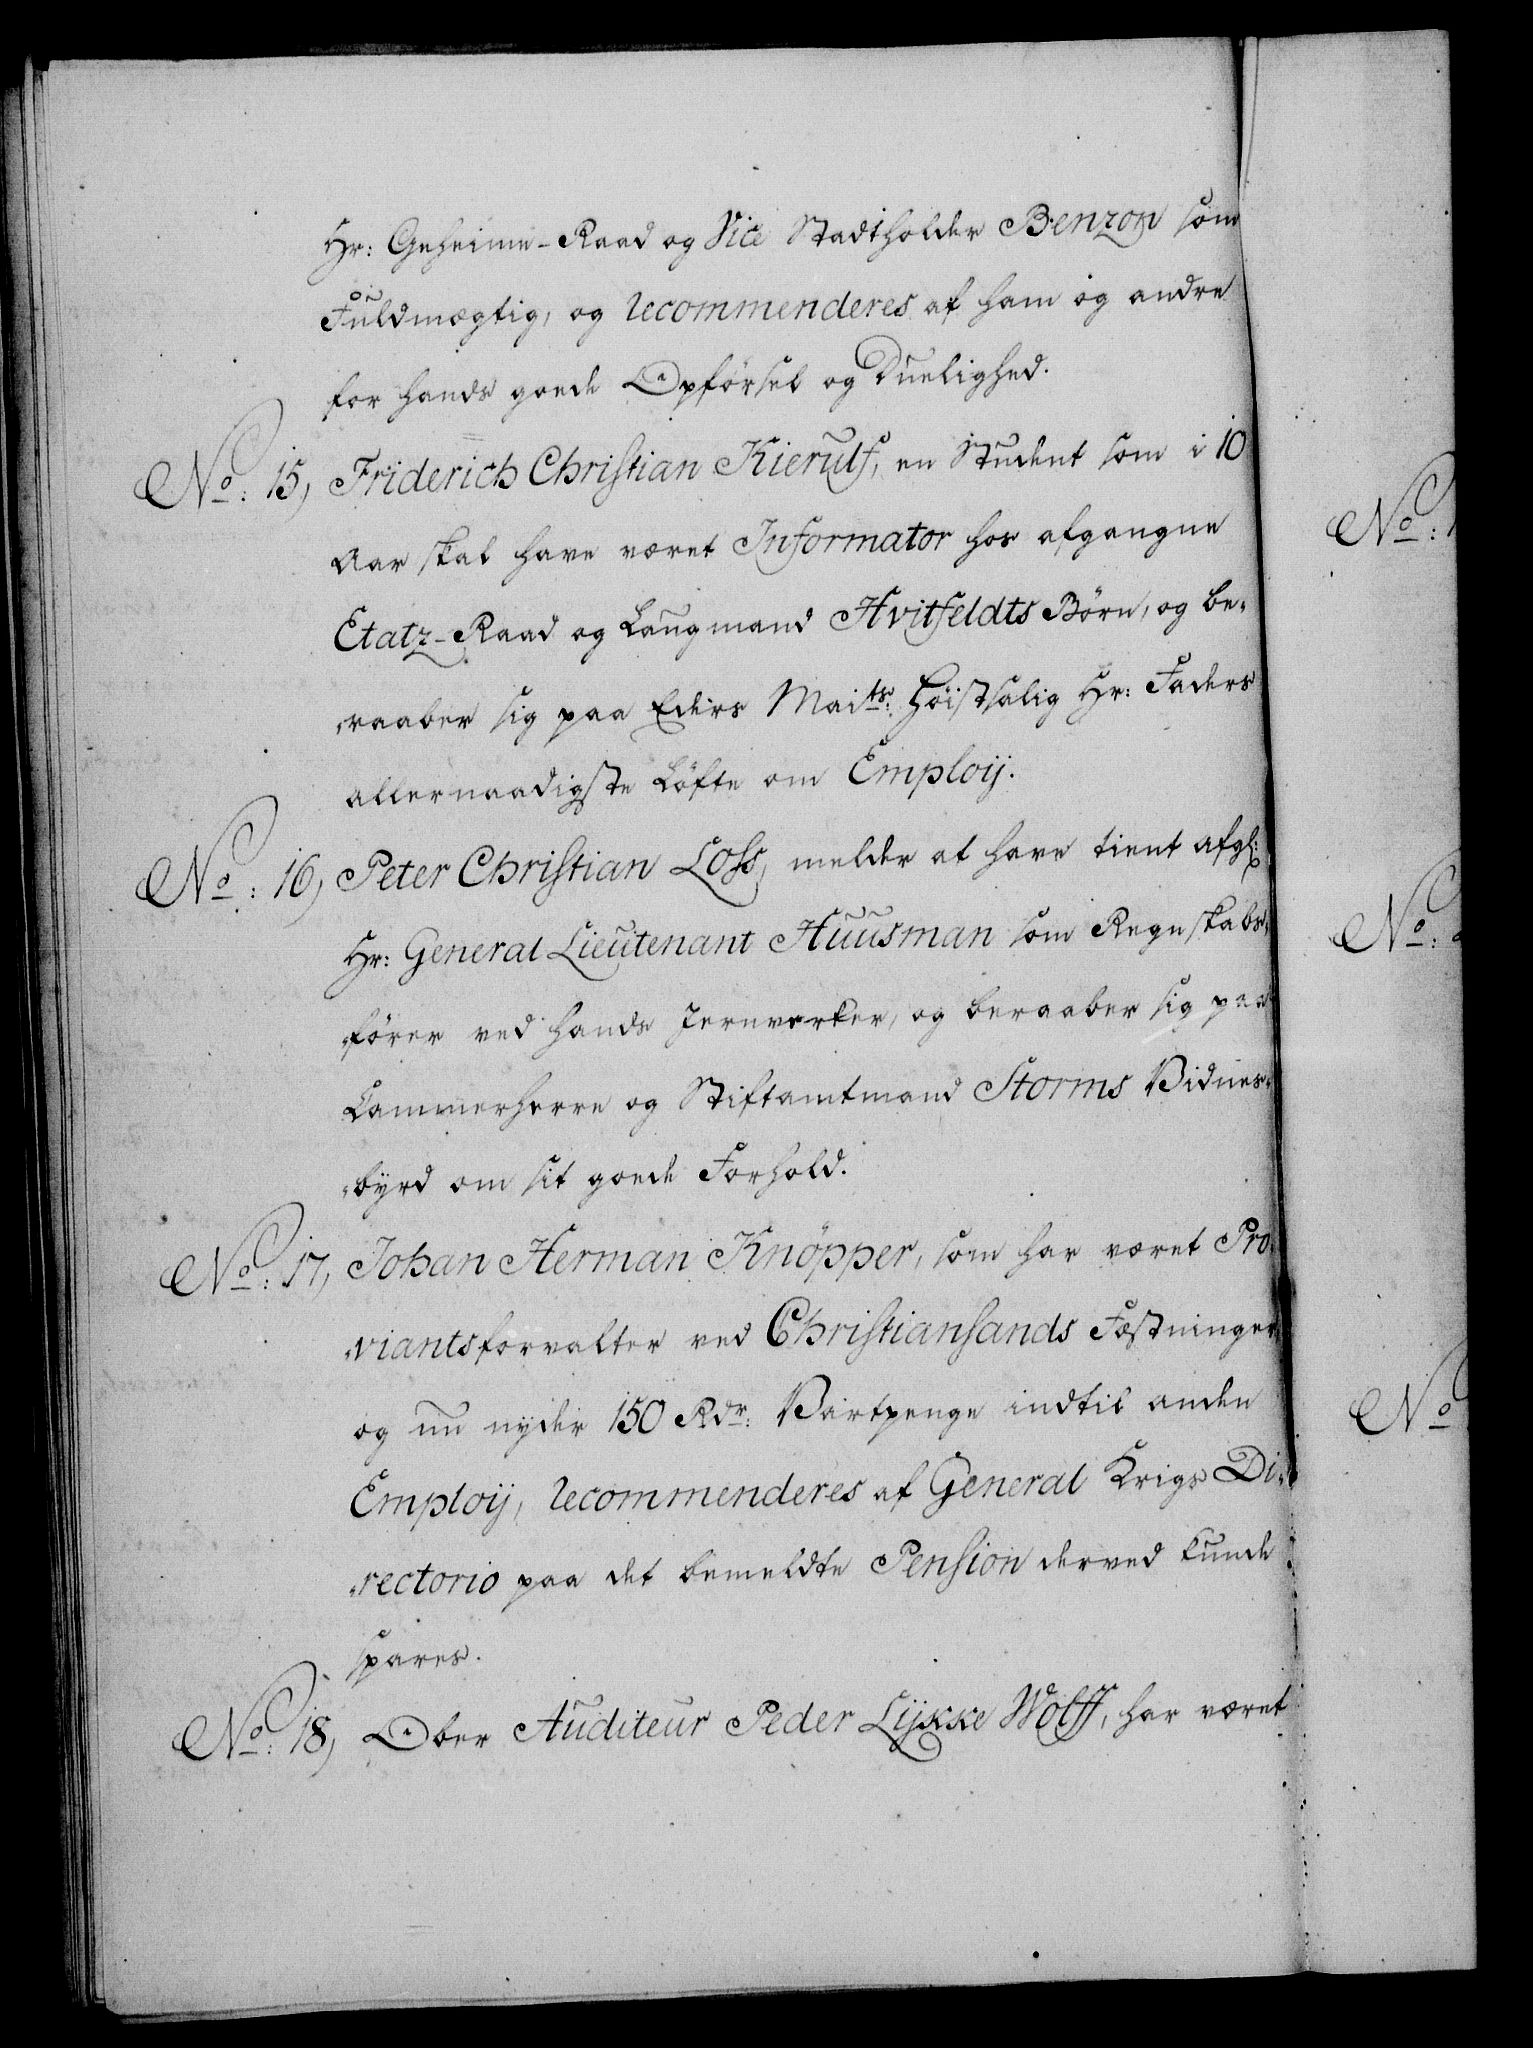 Hr: Geheime-Raad og Vice Stadtholder Benzon som
Fuldmægtig, og recommenderes af ham og andre
for hands goede Opførsel og Duelighed.
No: 15, Friderich Christian Kierulf, en Student som i 10
Aar skal have været Informator hos afgangne
Etatz-Raad og Laugmand Hvitfeldts Børn, og be-
-raaber sig paa Eders Maits: Høistsalig Hr: Faders
allernaadigste Løfte om Employ.
No: 16, Peter Christian Loss, melder at have tient afgl:
Hr: General Lieutenant Huusman som Regnskabs-
-fører ved hands Jernverker, og beraaber sig paa
Cammerherre og Stiftamtmand Storms Vidnes-
-byrd om sit goede Forhold.
No: 17, Johan Herman Knöpper, som har været Pro-
-viantsforvalter ved Christiansands Fæstninger,
og nu nyder 150 Rdr: Vartpenge indtil anden
Employ, recommenderes af General Krigs Di-
-rectorio paa det bemeldte Pension derved kunde
spares.
No: 18, Ober Auditeur Peder Lykke Wolff, har været
No:
No:
No